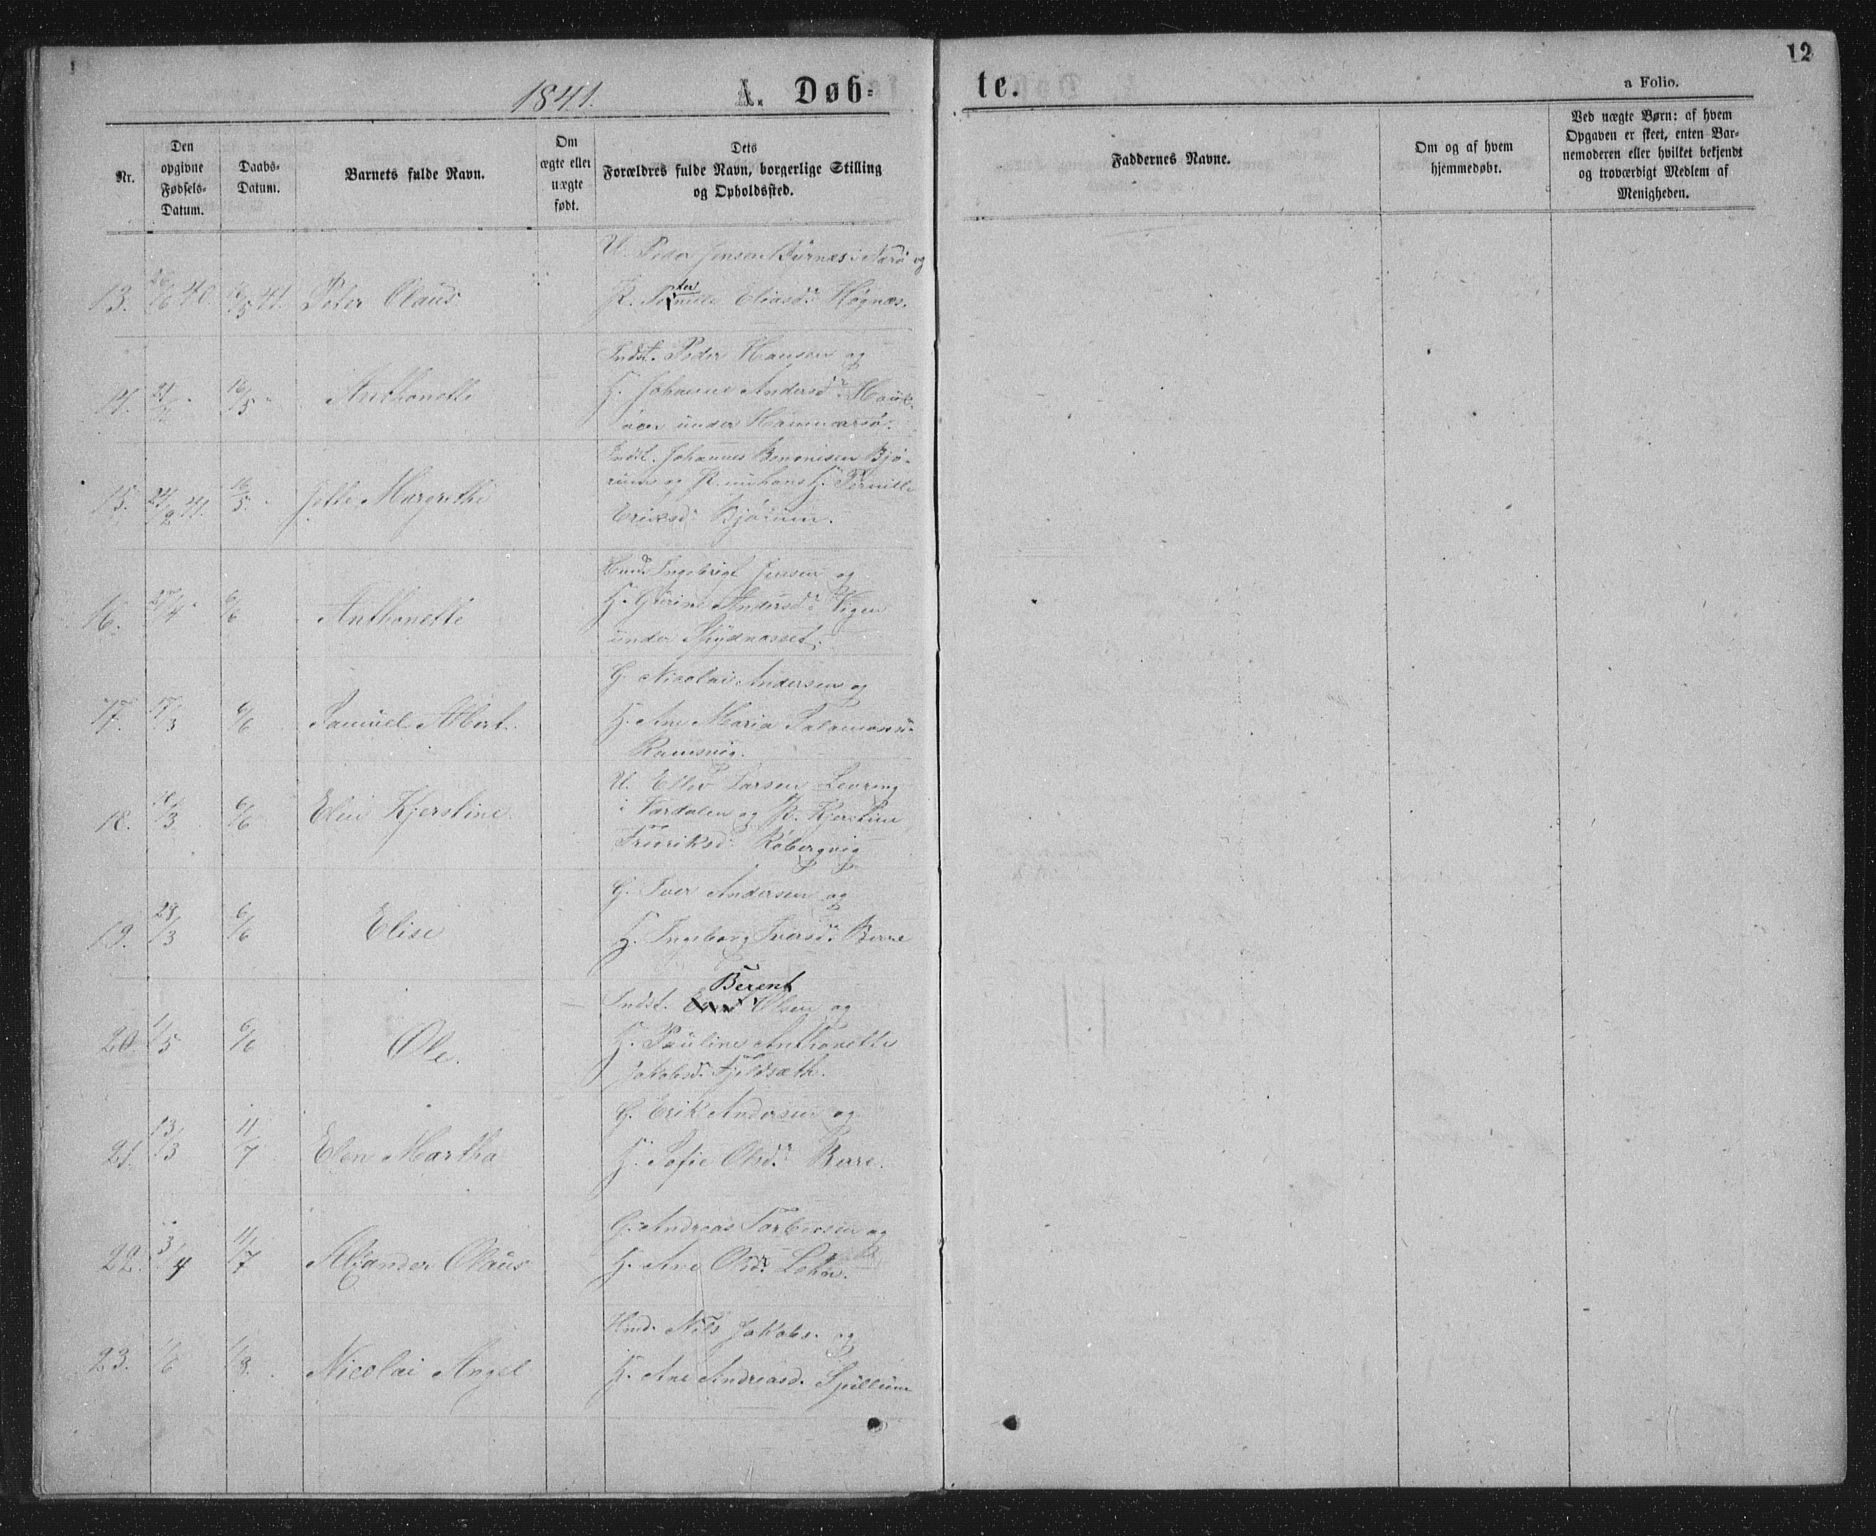 12
1841. A. Døb=
te.
a Folio.
Nr.
Den
opgivne
Fødsels-
Datum.
Daabs-
Datum.
Barnets fulde Navn.
Om
ægte eller
uægte
født.
Dets
Forældres fulde Navn, borgerlige Stilling
og Opholdssted.
Faddernes Navne.
Om og af hvem
hjemmedøbt.
Ved uægte Børn: af hvem
Opgaven er skeet, enten Bar-
nemoderen eller hvilket bekjendt
og troværdigt Medlem af
Menigheden.
U. Peder Jensen i Nærø og
13. 40. 16/5 41. Peter Claus
P. Eliasd. Høgnæs.
Indst. Peder Hansen og
14. 16/5 Anthonette
K. Johanne Andersd.
under
Indst. Johannes Bjø-
15. 24/2 41. 16/5 Margrethe
rum og P. K. Pernille
Eriksd. Bjørum.
Huusm. Ingebrigt Jensen og
16. /4 6/6 Anthonette
K. Andersd. Vigen
under
G. Nicolai Andersen og
17. 17/3 6/6 Samuel Albert.
K. Ane Maria Salamons.
Ramsvig.
U. Ellev Larsen Levring
18. 6/6 Elen Kjerstine.
i Værdalen og P. Kjerstine
Fredriksd. Røbergvig
G. Iver Andersen og
19. 28/3 6/6 Elise
K. Ingeborg Iversd. Berre
Berent
Indst. Olsen og
20. 1/5 6/6 Ole.
K. Pauline Anthonette
Jakobsd. Fjeldsæth.
G. Erik Andersen og
21. 13/3 11/7 Elen Martha
K. Sofie Olsd. Berre.
G. Andreas Torbersen og
22. 3/4 11/7 Alexander Olaus
K. Ane Olsd.
Hmd. Nils Jakobs. og
23. 1/6 1/8. Nicolai Angel
K. Ane Andreasd. Spillum